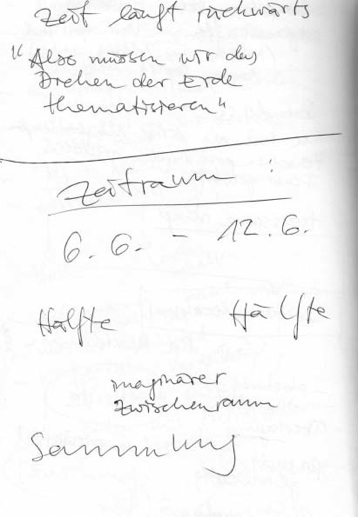 Zeit läuft rückwärts
"Also müssen wir das
Drehen der Erde
thematisieren"
Zeitraum :
6.6. - 12.6.
Hälfte Hälfte
imaginärer
Zwischenraum
Sammlung